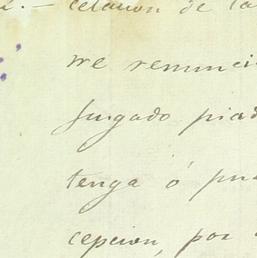 celacion de la
me renunci
Jusgado piad
tenga ó pu
cepcion, por